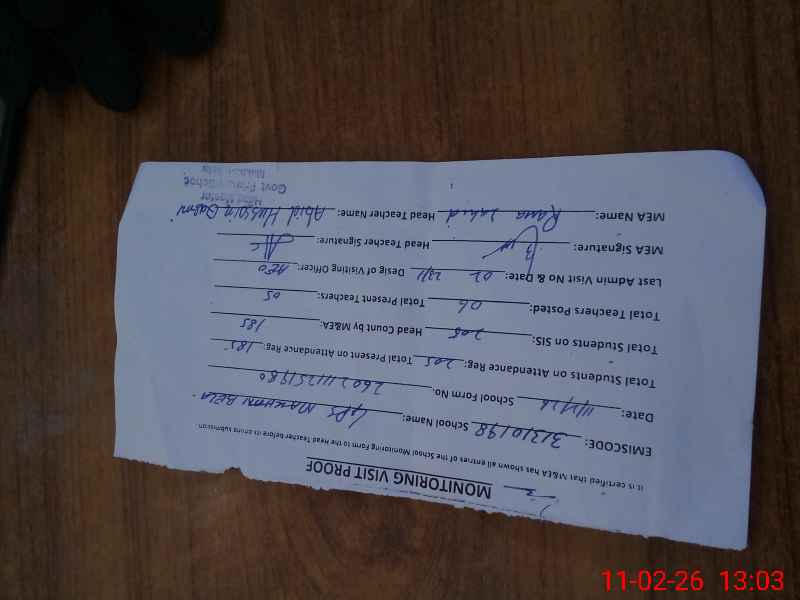 MONITORING VISIT PROOF
It is certified that M&EA has shown all entries of the School Monitoring Form to the Head Teacher before its online submission
EMISCODE: 31310198 School Name: GPS MAKHAN BELA
Date: 11/2/26 School Form No.
Total Students on Attendance Reg: 205 Total Present on Attendance Reg: 185
Total Students on SIS: 205 Head Count by M&EA: 185
Total Teachers Posted: 06 Total Present Teachers: 05
Last Admin Visit No & Date: 02 Desig of Visiting Officer: AEO
MEA Signature: Head Teacher Signature:
MEA Name: Rana Zahid Head Teacher Name: Abid Hussain
Govt
11-02-26 13:03